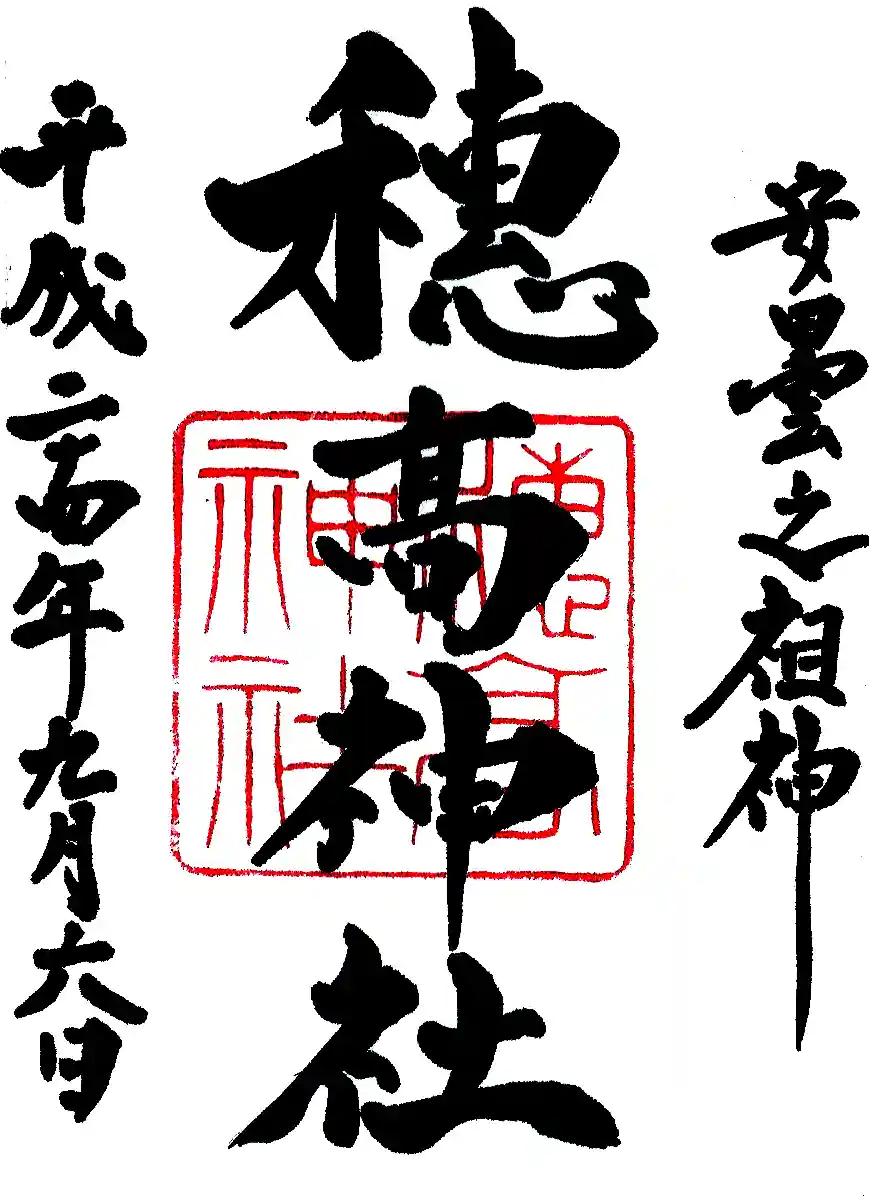 安曇之祖神
穂高神社
穂高
神社
平成二十四年九月六日